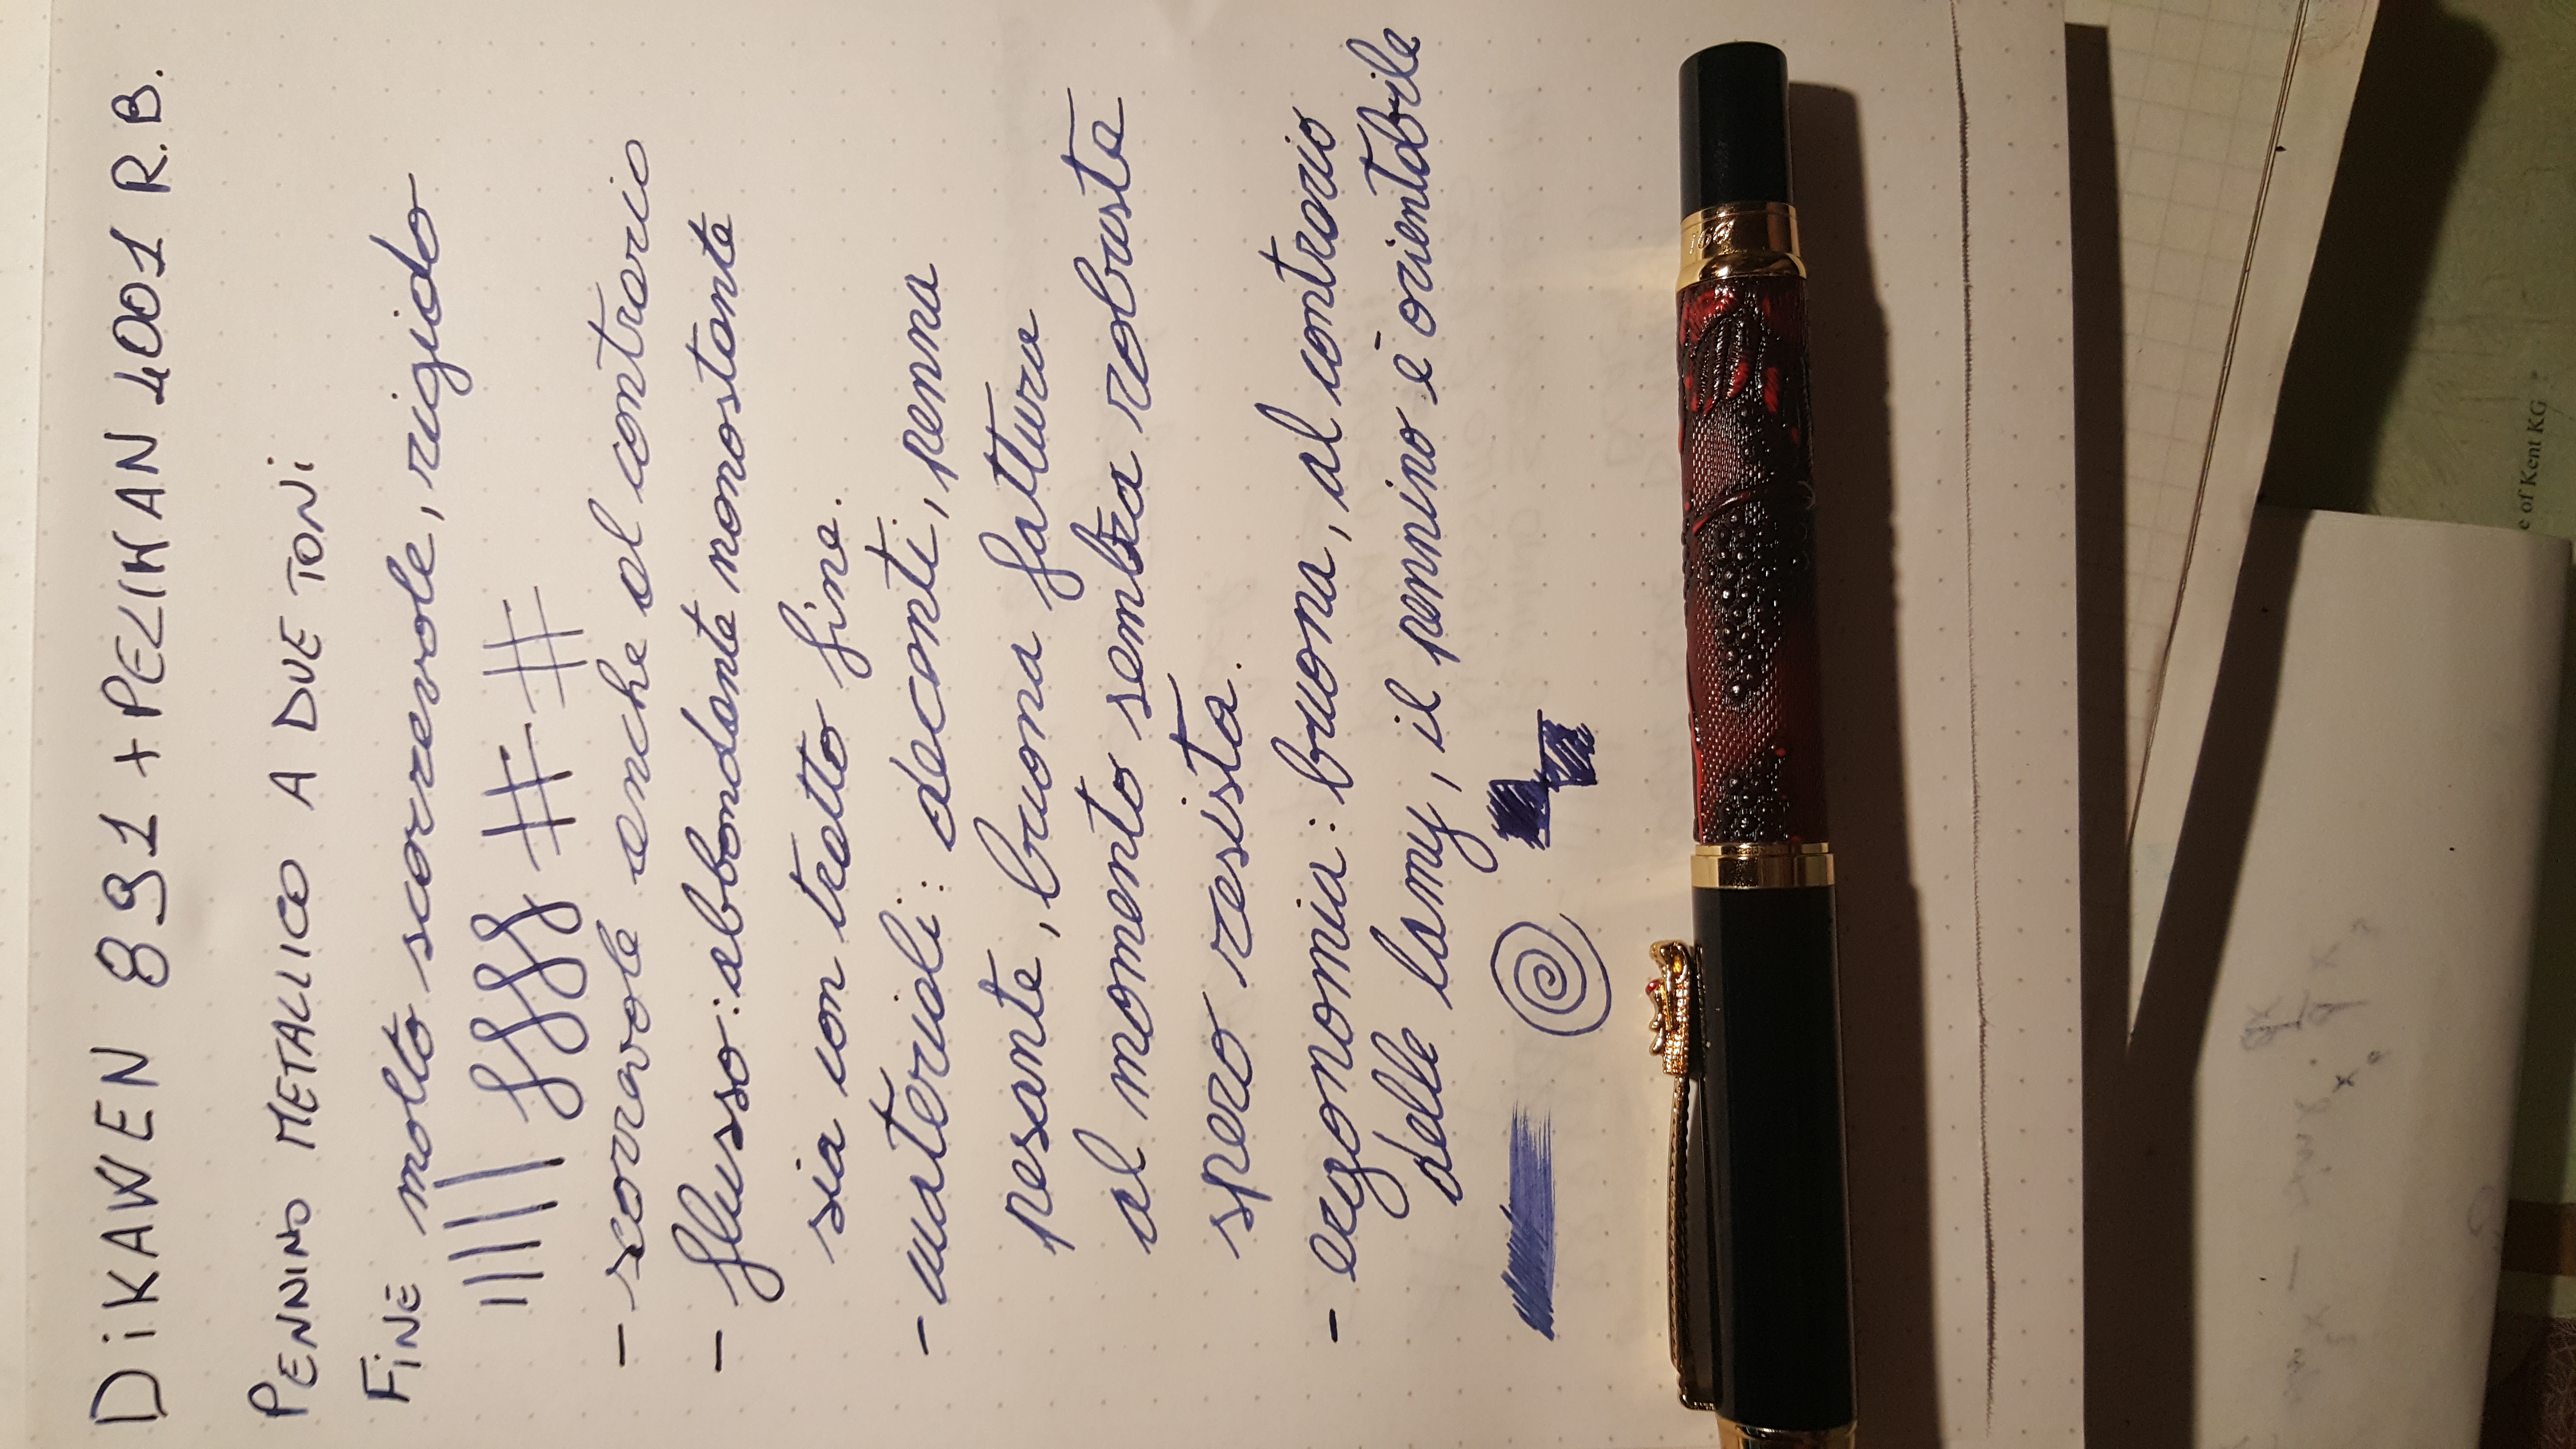 DiKAWEN 891 + PELIKAN 4001 R.B.
PENNINO METALLICO A DUE TONi
FINE molto scorrevole, rigido
- scorravole anche al contrario
- flusso: abbondante nonostante
sia con tratto fine.
- materiali: deconti, penna
pesante, buona fattura
al momento sembra robusta
spero resista.
- ergonomia: buona, al contrario
delle lamy, il pennino è orientabile
e of Kent KG